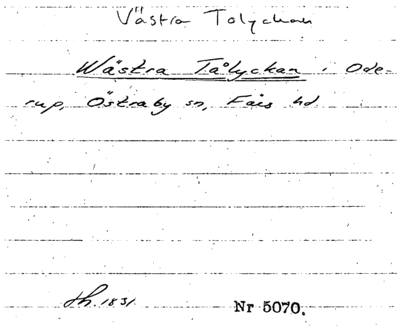 Västra Tolyckan
Wästra Tålyckan i Ode-
rup, Östraby sn, Färs hd
Sk. 1831 Nr 5070.